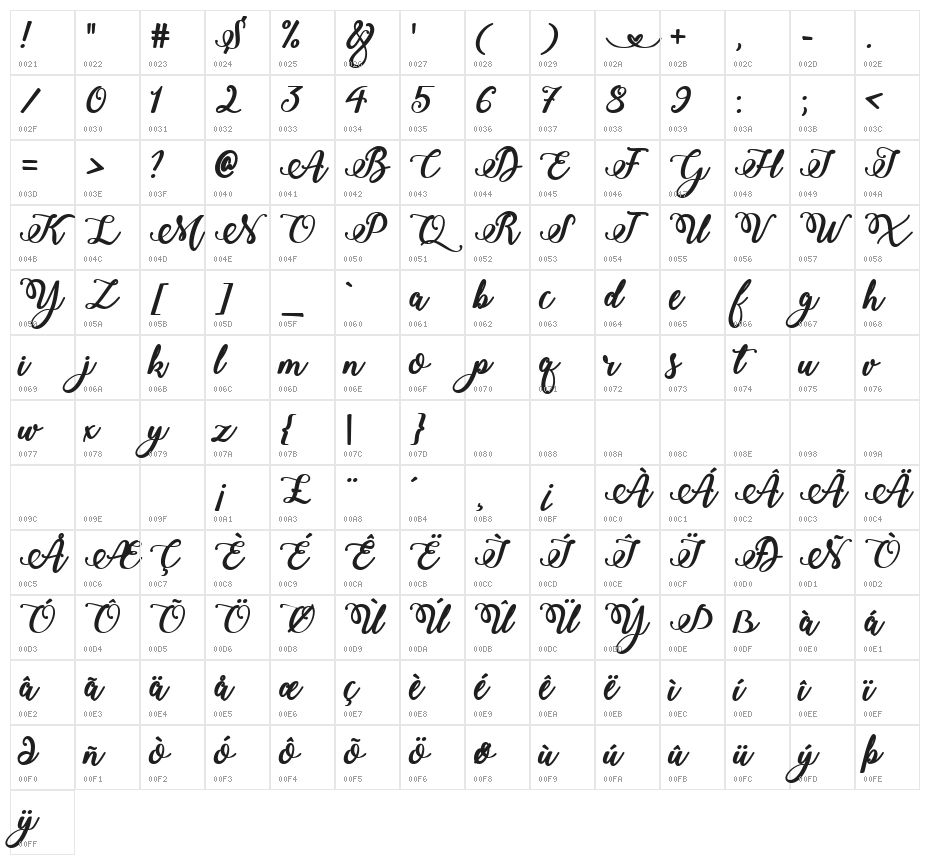 ! " # $ % & ' ( ) * + , - .
0021 0022 0023 0024 0025 0026 0027 0028 0029 002A 002B 002C 002D 002E
/ 0 1 2 3 4 5 6 7 8 9 : ; <
002F 0030 0031 0032 0033 0034 0035 0036 0037 0038 0039 003A 003B 003C
= > ? @ A B C D E F G H I J
003D 003E 003F 0040 0041 0042 0043 0044 0045 0046 0047 0048 0049 004A
K L M N O P Q R S T U V W X
004B 004C 004D 004E 004F 0050 0051 0052 0053 0054 0055 0056 0057 0058
Y Z [ ] _ ` a b c d e f g h
0059 005A 005B 005D 005F 0060 0061 0062 0063 0064 0065 0066 0067 0068
i j k l m n o p q r s t u v
0069 006A 006B 006C 006D 006E 006F 0070 0071 0072 0073 0074 0075 0076
w x y z { | }
0077 0078 0079 007A 007B 007C 007D 0080 0088 008A 008C 008E 0098 009A
¡ £ ¨ ´ ¸ ¿ À Á Â Ã Ä
009C 009E 009F 00A1 00A3 00A8 00B4 00B8 00BF 00C0 00C1 00C2 00C3 00C4
Å Æ Ç È É Ê Ë Ì Í Î Ï Ð Ñ Ò
00C5 00C6 00C7 00C8 00C9 00CA 00CB 00CC 00CD 00CE 00CF 00D0 00D1 00D2
Ó Ô Õ Ö Ø Ù Ú Û Ü Ý Þ ß à á
00D3 00D4 00D5 00D6 00D8 00D9 00DA 00DB 00DC 00DD 00DE 00DF 00E0 00E1
â ã ä å æ ç è é ê ë ì í î ï
00E2 00E3 00E4 00E5 00E6 00E7 00E8 00E9 00EA 00EB 00EC 00ED 00EE 00EF
ð ñ ò ó ô õ ö ø ù ú û ü ý þ
00F0 00F1 00F2 00F3 00F4 00F5 00F6 00F8 00F9 00FA 00FB 00FC 00FD 00FE
ÿ
00FF